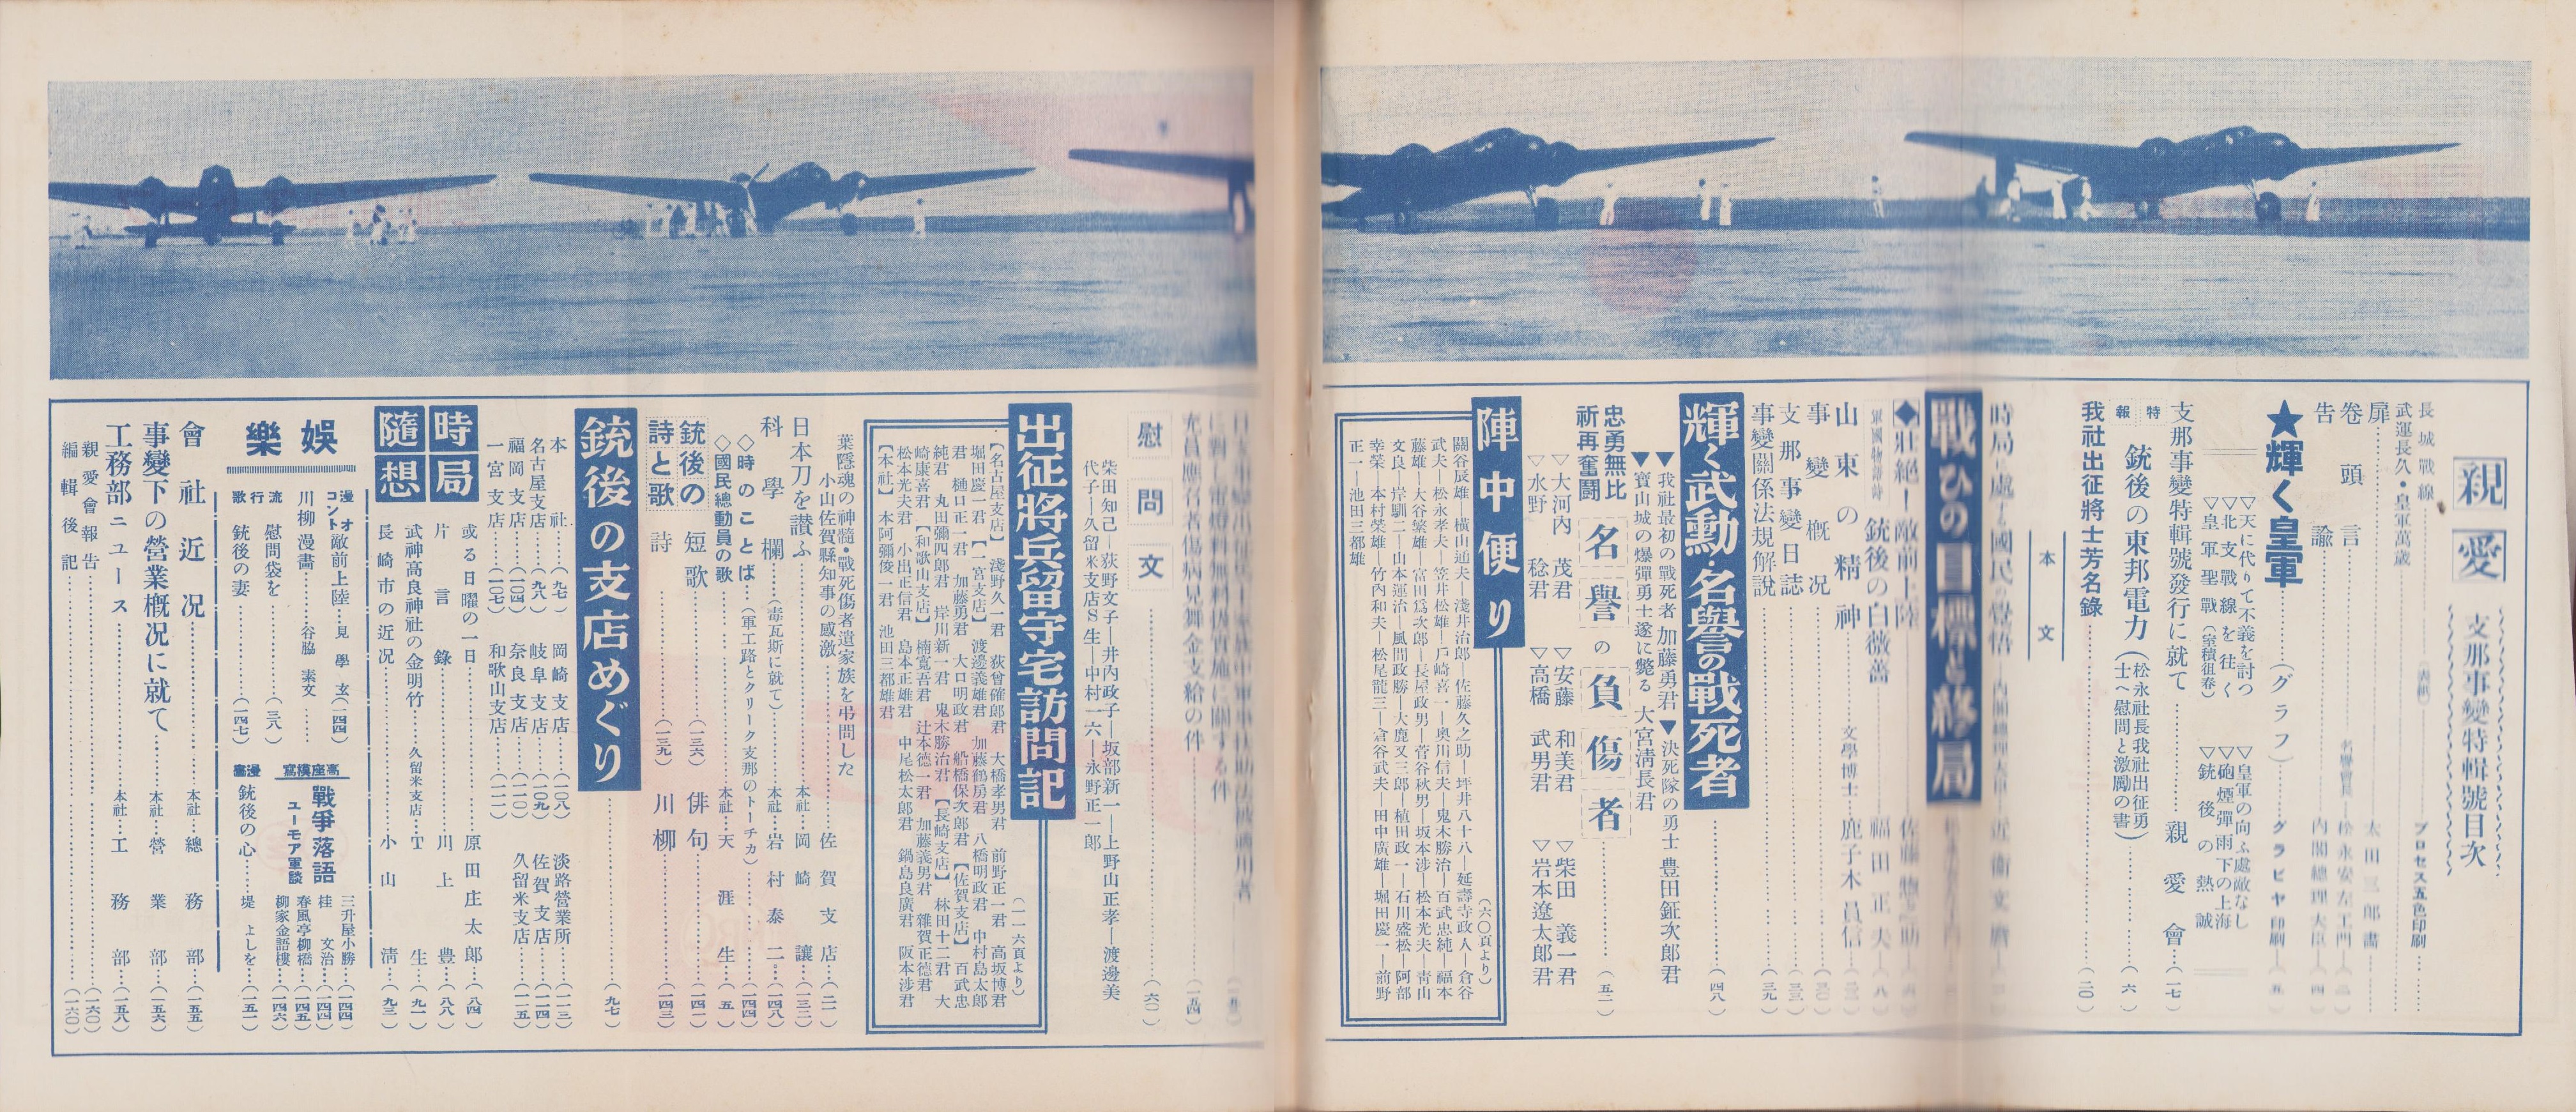 親愛 支那事變特輯號目次
長城戰線
武運長久・皇軍萬歲
プロセス五色印刷
扉
太田三郎畫
卷頭言
松永安左エ門
告諭
內閣總理大臣
★輝く皇軍(グラフ)
グラビヤ印刷
▽天に代りて不義を討つ
▽北支戰線を往く
▽皇軍聖戰(室積徂春)
▽皇軍の向ふ處敵なし
▽砲煙彈雨下の上海
▽銃後の熱誠
支那事變特輯號發行に就て
親愛會
(一七)
特報
銃後の東邦電力(松永社長我社出征勇士へ慰問と激勵の書)
(六)
我社出征將士芳名錄
(二〇)
本文
時局に處する國民の覺悟
內閣總理大臣
近衞文麿
戰ひの目標と終局
◆壯絕!敵前上陸
軍國物語詩
銃後の白薔薇
福田正夫
(八)
山東の精神
文學博士
鹿子木員信
事變槪况
(三〇)
支那事變日誌
(三三)
事變關係法規解說
(三九)
輝く武勳・名譽の戰死者
(四八)
▼我社最初の戰死者 加藤勇君
▼決死隊の勇士 豊田鉦次郎君
▼寶山城の爆彈勇士遂に斃る 大宮淸長君
忠勇無比
祈再奮鬪
名譽の負傷者
(五二)
▽大河內 茂君
▽安藤 和美君
▽柴田 義一君
▽水野 稔君
▽高橋 武男君
▽岩本遼太郎君
陣中便り
(六〇頁より)
關谷辰雄―横山通夫―淺井治郎―佐藤久之助―坪井八十八―延壽寺政人―倉谷
武夫―松永孝夫―笠井松雄―戶崎喜一―奧川信夫―鬼木勝治―百武忠純―福本
藤雄―大谷繁雄―富田爲次郎―長屋政男―菅谷秋男―坂本涉―松本光夫―靑山
文良―岸馴二―山本運治―風間政勝―大鹿又三郎―植田政一―石川盛松―阿部
幸榮―本村榮雄―竹內和夫―松尾龍三―倉谷武夫―田中廣雄―堀田慶一―前野
正一―池田三都雄
充員應召者傷病見舞金支給の件
(一五四)
慰問文
(六〇)
柴田知己―荻野文子―井內政子―坂部新一―上野山正孝―渡邊美
代子―久留米支店S生―中村一六―永野正一郎
出征將兵留守宅訪問記
(一一六頁より)
【名古屋支店】 淺野久一君 荻曾確郎君 大橋孝男君 前野正一君 高坂博君
堀田慶一君 【一宮支店】 渡邊義雄君 加藤鶴房君 八橋明政君 中村島太郎
君 樋口正一君 加藤勇君 大口明政君 船橋保次郎君 【佐賀支店】 百武忠
純君 丸田彌四郎君 岸川新一君 鬼木勝治君 【長崎支店】 林田十二君 大
崎康喜君 【和歌山支店】 楠寬吾君 辻本德一君 加藤義男君 雜賀正德君
松本光夫君 小出正信君 島本正雄君 中尾松太郎君 鍋島良廣君 阪本涉君
【本社】 本阿彌俊一君 池田三都雄君
葉隱魂の神髓・戰死傷者遺家族を弔問した
小山佐賀縣知事の感激
佐賀支店
(二一)
日本刀を讃ふ
本社
岡崎讓
(一三三)
科學欄
(毒瓦斯に就て)
本社
岩村泰二
(一四八)
◇時のことば
(軍工路とクリーク支那のトーチカ)
(一四四)
◇國民總動員の歌
本社
天涯生
(五)
銃後の詩と歌
短歌
(一三六)
俳句
(一四二)
詩
(一三九)
川柳
(一四三)
銃後の支店めぐり
(九七)
本社
(九七)
岡崎支店
(一〇八)
淡路營業所
(一一三)
名古屋支店
(九八)
岐阜支店
(一〇九)
佐賀支店
(一一四)
福岡支店
(一〇四)
奈良支店
(一一〇)
久留米支店
(一一五)
一宮支店
(一〇七)
和歌山支店
(一一一)
時局隨想
或る日曜の一日
原田庄太郎
(八四)
片言錄
川上豊
(八八)
武神高良神社の金明竹
久留米支店
T生
(九一)
長崎市の近况
小山淸
(九三)
娛樂
漫オコント
敵前上陸
見學玄
(一四四)
川柳漫畵
谷脇素文
流行歌
慰問袋を
(三八)
銃後の妻
(一四七)
高座模寫
戰爭落語
ユーモア軍談
三升屋小勝
(一四四)
桂文治
(一四四)
春風亭柳橋
(一四五)
柳家金語樓
(一四六)
漫畵
銃後の心
堤よしを
(一五一)
會社近况
本社
總務部
(一五五)
事變下の營業槪况に就て
本社
營業部
(一五六)
工務部ニュース
本社
工務部
(一五八)
親愛會報告
(一六〇)
編輯後記
(一六〇)